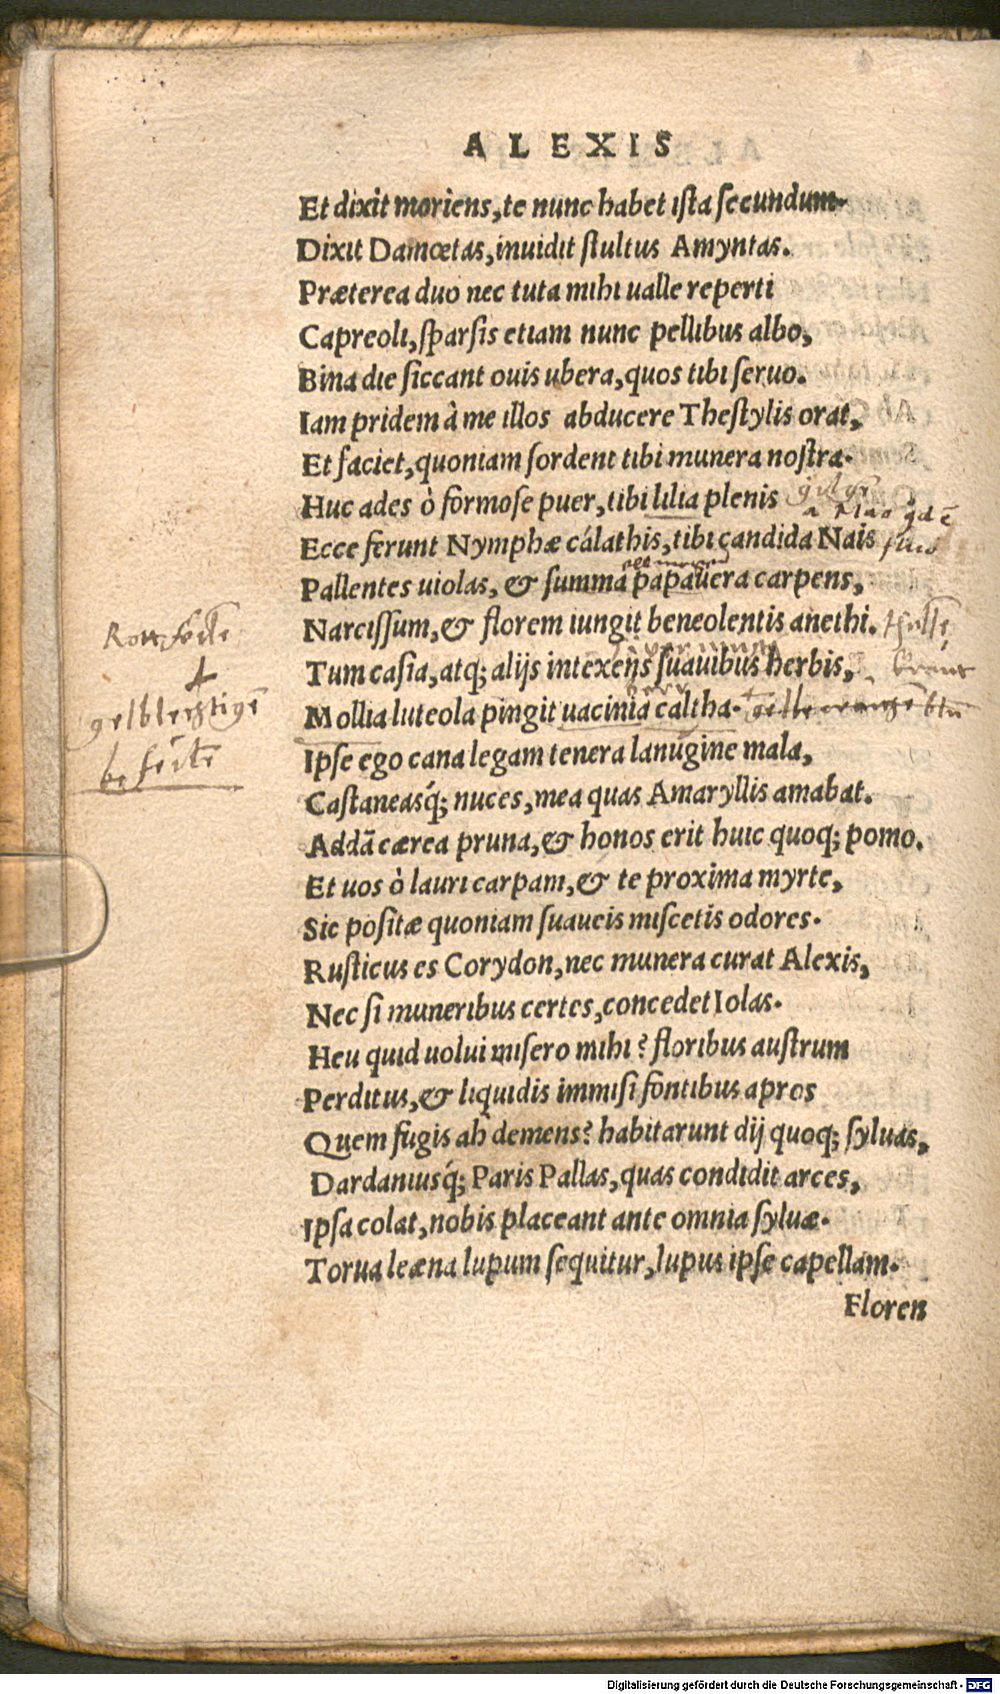 ALEXIS
Et dixit moriens, te nunc habet ista secundum.
Dixit Damœtas, inuidit stultus Amyntas.
Præterea duo nec tuta mihi ualle reperti
Capreoli, sparsis etiam nunc pellibus albo,
Bina die siccant ouis ubera, quos tibi seruo.
Iam pridem à me illos abducere Thestylis orat,
Et faciet, quoniam sordent tibi munera nostra.
Huc ades ò formose puer, tibi lilia plenis
Ecce ferunt Nymphæ cálathis, tibi candida Nais
Pallentes uiolas, & summa papauera carpens,
Narcissum, & florem iungit beneolentis anethi.
Tum casia, atq; alijs intexens suauibus herbis,
Mollia luteola pingit uacinia caltha.
Ipse ego cana legam tenera lanugine mala,
Castaneasq́; nuces, mea quas Amaryllis amabat.
Addā cærea pruna, & honos erit huic quoq; pomo.
Et uos ò lauri carpam, & te proxima myrte,
Sic positæ quoniam suaueis miscetis odores.
Rusticus es Corydon, nec munera curat Alexis,
Nec si muneribus certes, concedet Iolas.
Heu quid uolui misero mihi? floribus austrum
Perditus, & liquidis immisi fontibus apros
Quem fugis ah demens? habitarunt dij quoq; syluas,
Dardaniusq́; Paris Pallas, quas condidit arces,
Ipsa colat, nobis placeant ante omnia syluæ.
Torua leæna lupum sequitur, lupus ipse capellam.
Floren
Digitalisierung gefördert durch die Deutsche Forschungsgemeinschaft - DFG